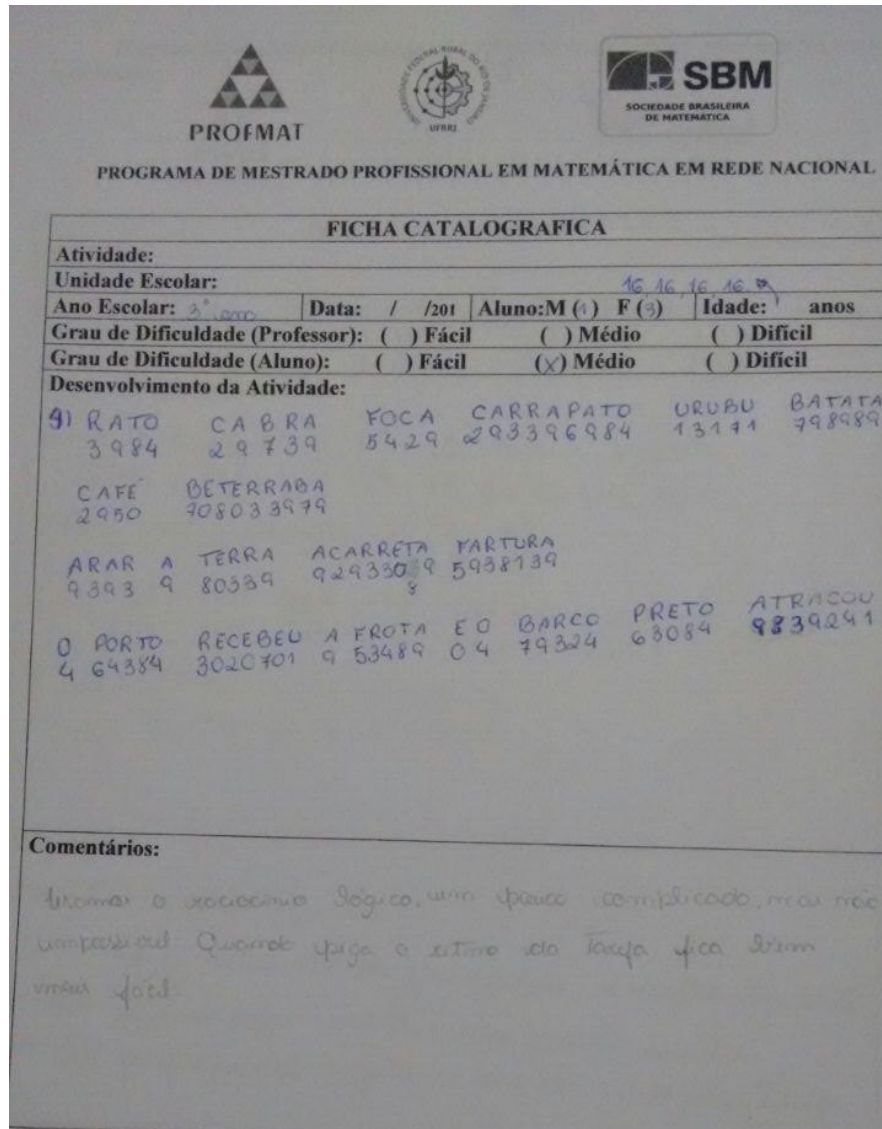 PROFMAT
UNIVERSIDADE FEDERAL RURAL DO RIO DE JANEIRO
UFRRJ
SBM
SOCIEDADE BRASILEIRA
DE MATEMÁTICA
PROGRAMA DE MESTRADO PROFISSIONAL EM MATEMÁTICA EM REDE NACIONAL
FICHA CATALOGRAFICA
Atividade:
Unidade Escolar:
16, 16, 16, 16
Ano Escolar: 3º ano Data: / /201 Aluno:M (1) F (3) Idade: anos
Grau de Dificuldade (Professor): ( ) Fácil ( ) Médio ( ) Difícil
Grau de Dificuldade (Aluno): ( ) Fácil (X) Médio ( ) Difícil
Desenvolvimento da Atividade:
RATO CABRA FOCA CARRAPATO URUBU BATATA
3984 29739 5429 293396984 13171 798989
CAFÉ BETERRABA
2950 708033979
ARAR A TERRA ACARRETA FARTURA
9393 9 80339 9293309 5938139
8
O PORTO RECEBEU A FROTA E O BARCO PRETO ATRACOU
4 64384 3020701 9 53489 0 4 79324 63084 9839241
Comentários:
o raciocínio lógico, um pouco complicado, mas não
impossível Quando pega o ritmo da Tarefa fica bem
mais fácil